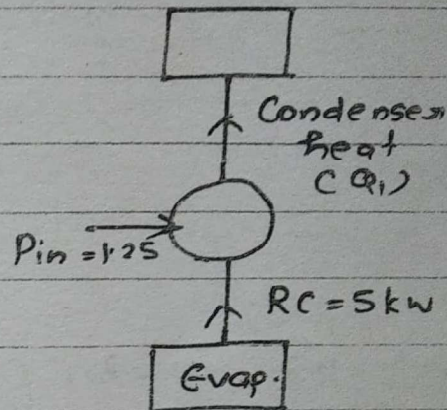 Condenser
heat
(Q₁)
Pin = 1.25
RC = 5 kw
Evap.